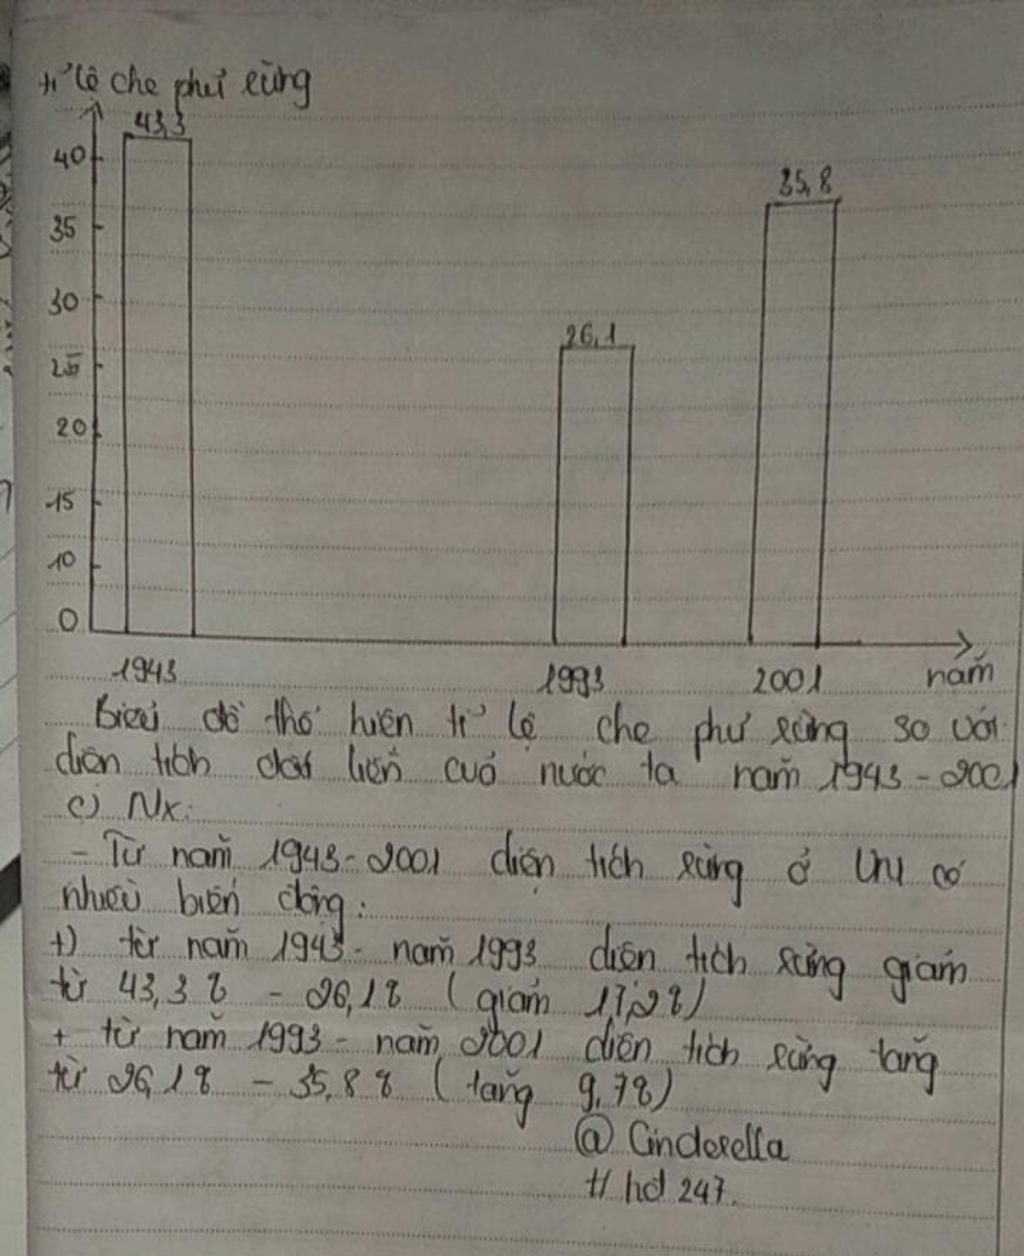 tỉ lệ che phủ rừng
43,3
40
35,8
35
30
26,1
25
20
15
10
0
1943 1993 2001 năm
Biểu đồ thể hiện tỉ lệ che phủ rừng so với
diện tích đất liền của nước ta năm 1943-2001
c) Nx:
- Từ năm 1943-2001 diện tích rừng ở VN có
nhiều biến động:
+) từ năm 1943- năm 1993 diện tích rừng giảm
từ 43,3% - 26,1% (giảm 17,2%)
+ từ năm 1993- năm 2001 diện tích rừng tăng
từ 26,1% - 35,8% (tăng 9,7%)
@ Cinderella
# hd 247.